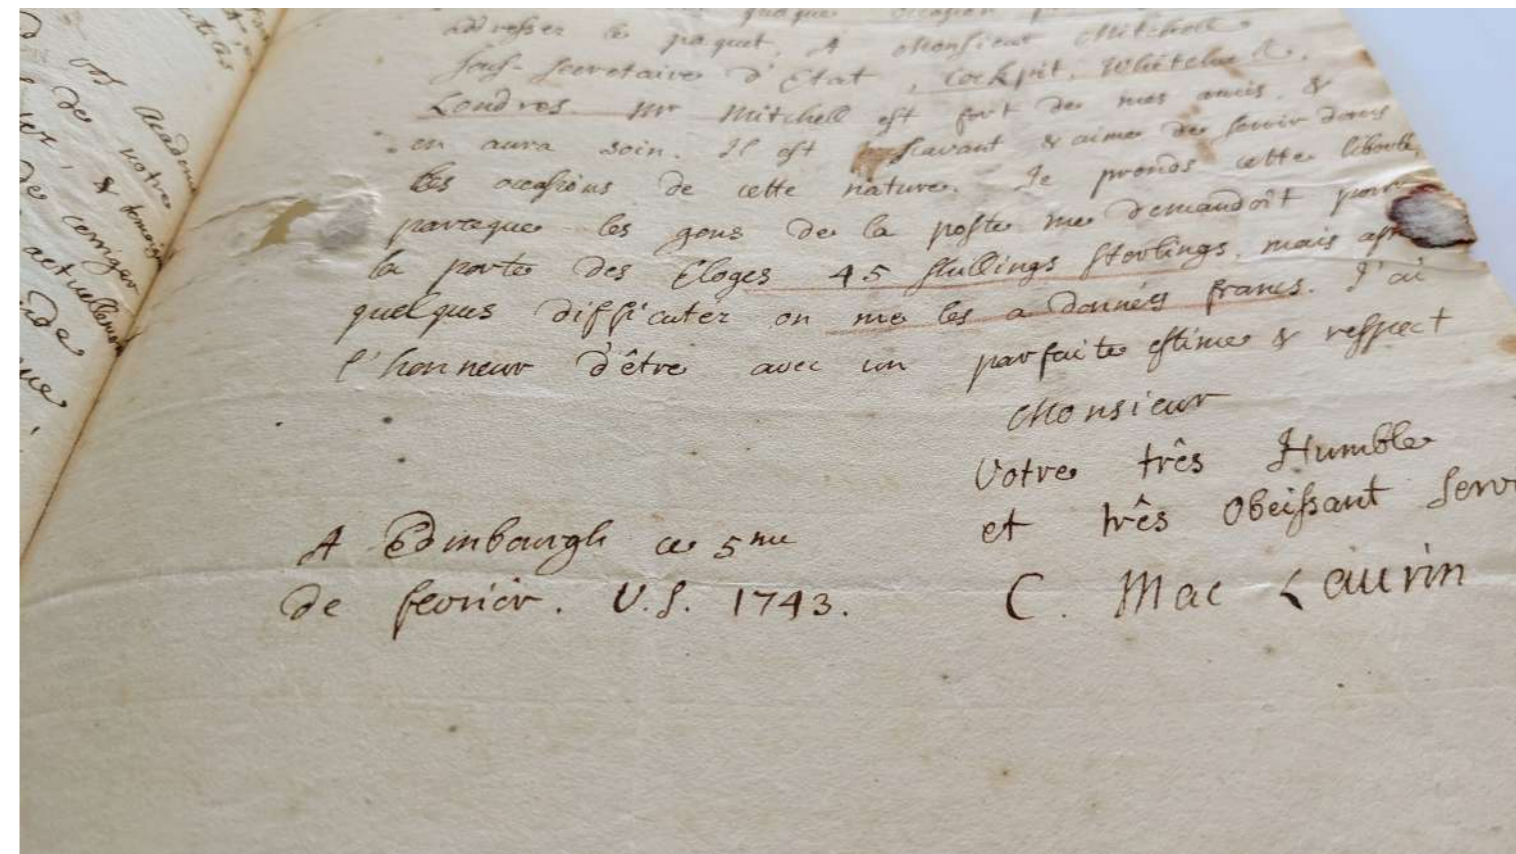 quelque occasion
addresser le paquet, A Monsieur Mitchell
sous-secretaire d'Etat, Cockpit, Whitehall.
Londres. Mr Mitchell est fort de mes amis, &
en aura soin. Il est sçavant & aime de servir dans
les occasions de cette nature. Je prends cette liberté,
parceque les gens de la poste me demandoît pour
la porte des Eloges 45 shillings sterlings, mais
quelques difficutez on me les a donnés francs. J'ai
l'honneur d'être avec un parfaite estime & respect
Monsieur
Votre très Humble
et três Obeissant Servi
A Edinbourgh ce 5me
de fevrier. V.S. 1743.
C. Mac Laurin
vos Academ
de notre
& temoig
de corriger
actuellement